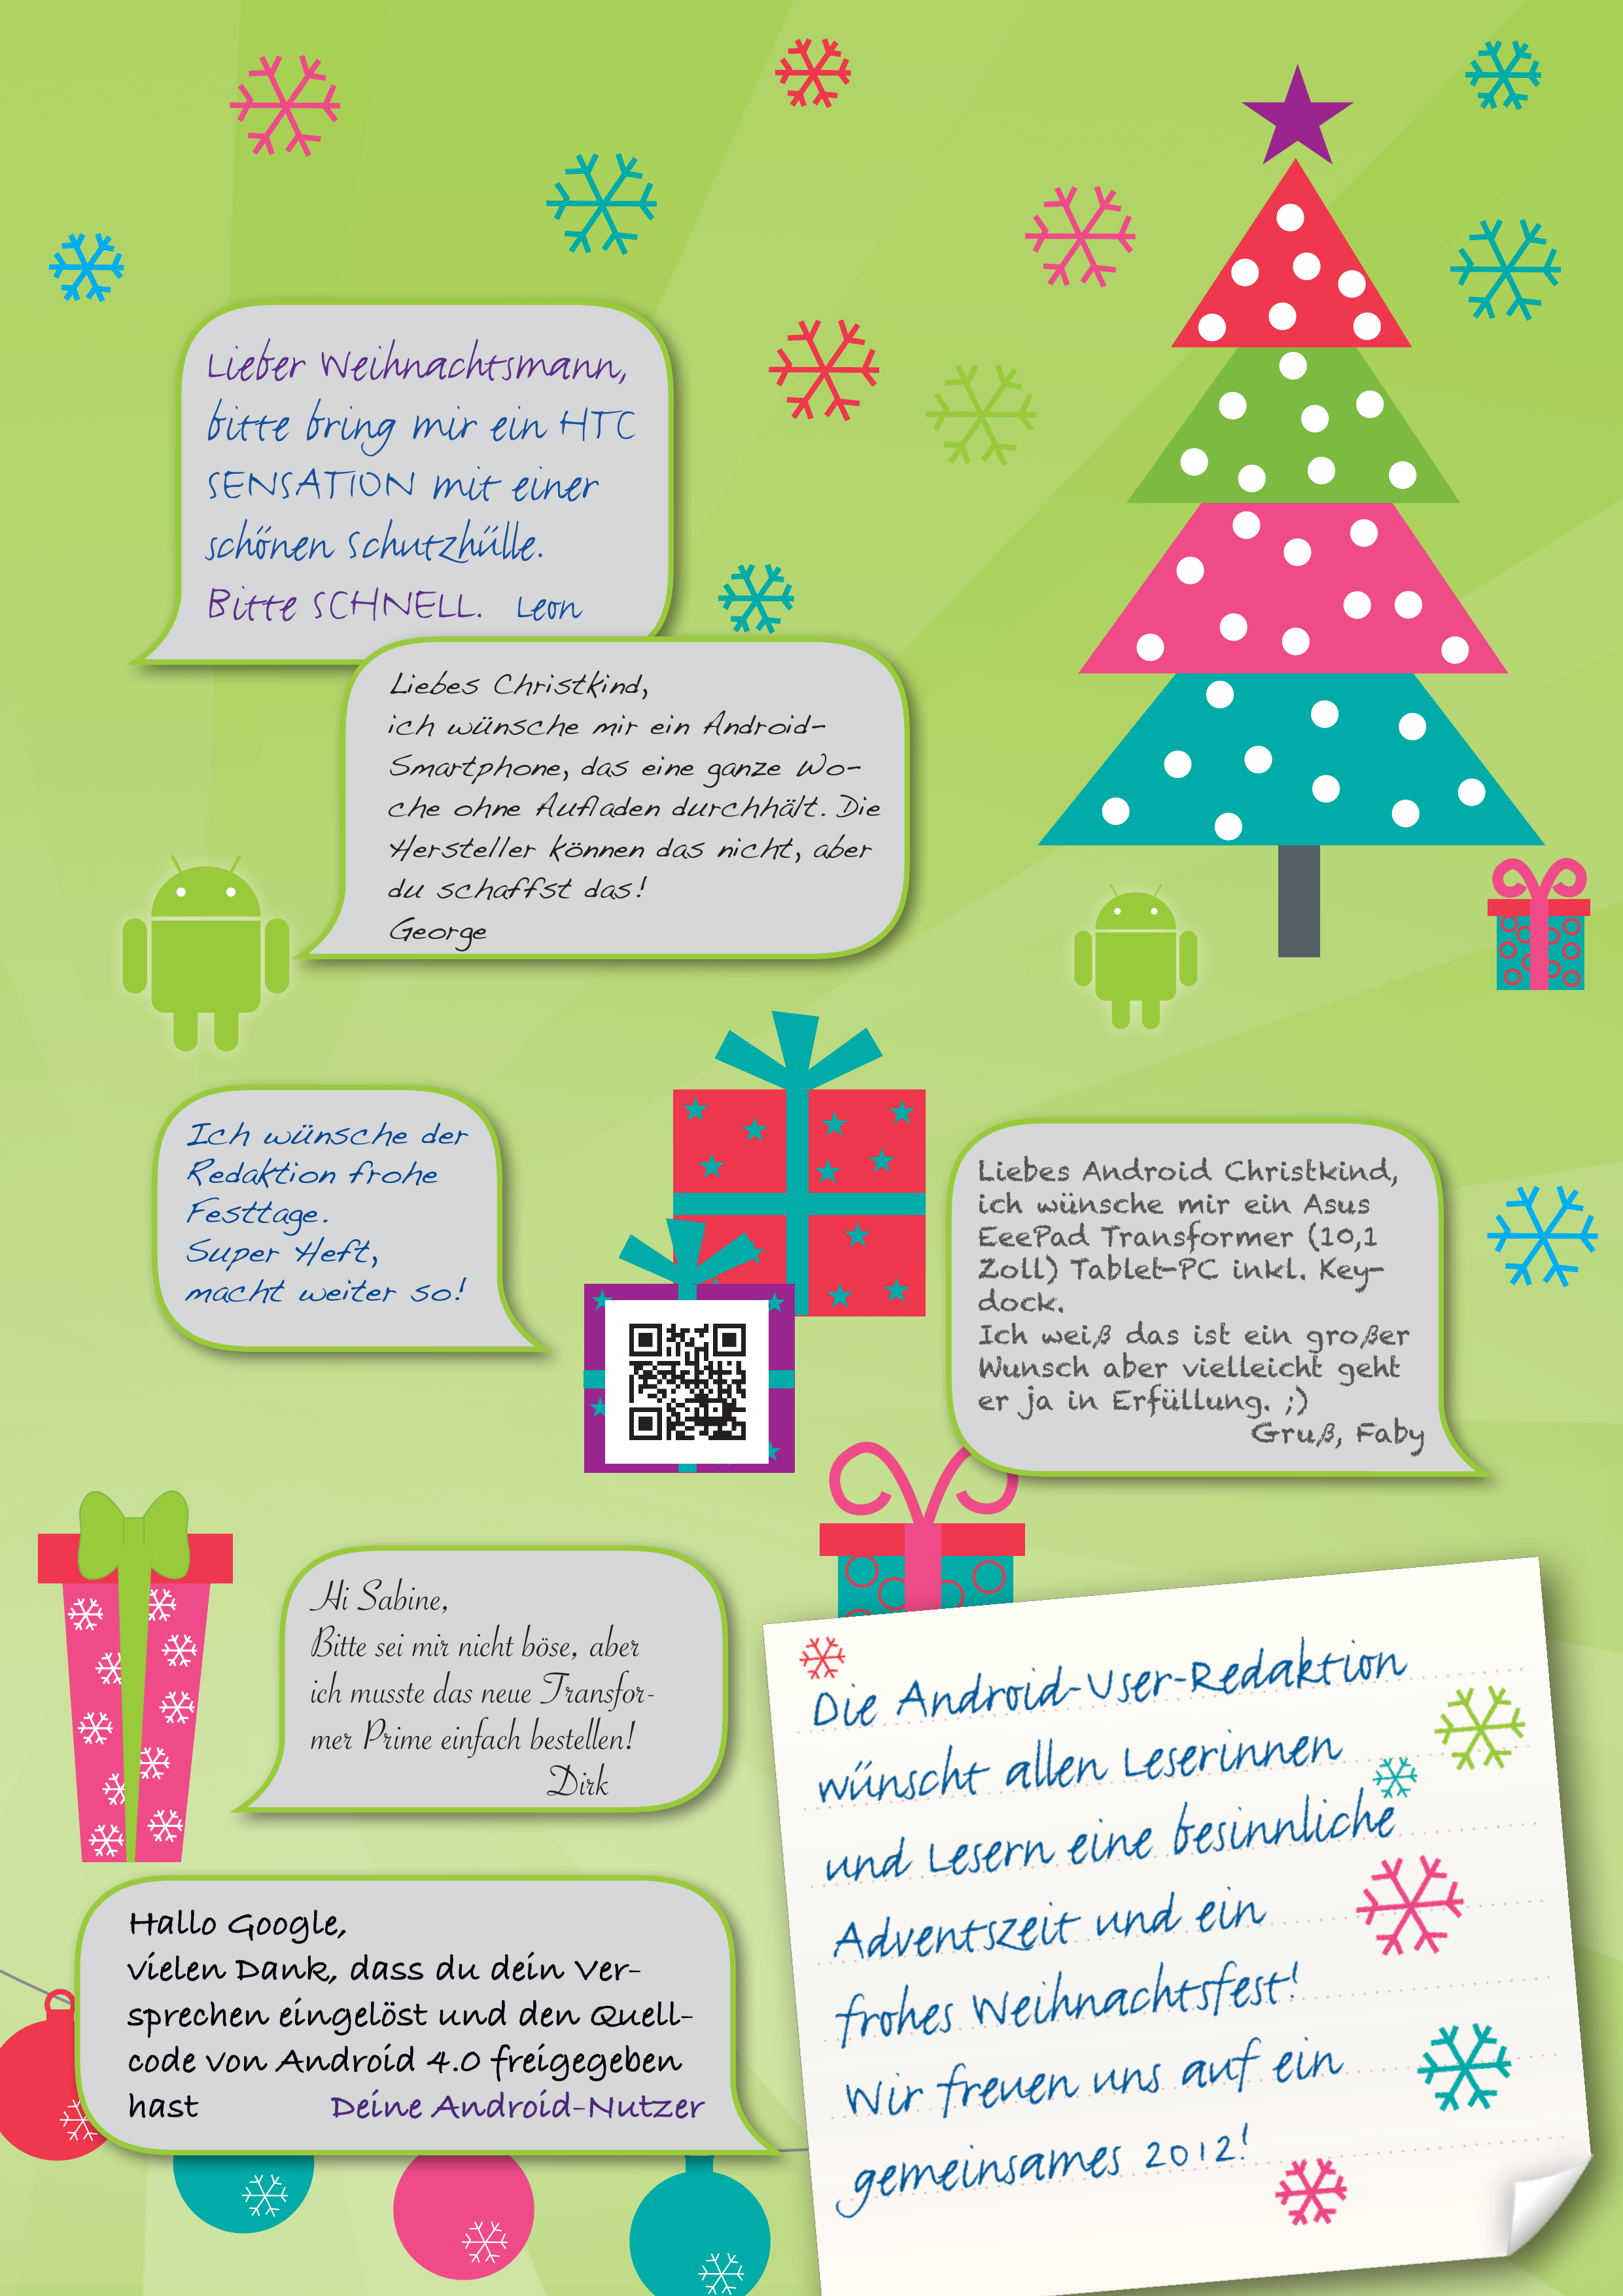 Lieber Weihnachtsmann,
bitte bring mir ein HTC
SENSATION mit einer
schönen Schutzhülle.
Bitte SCHNELL. Leon
Liebes Christkind,
ich wünsche mir ein Android-
Smartphone, das eine ganze Wo-
che ohne Aufladen durchhält. Die
Hersteller können das nicht, aber
du schaffst das!
George
Ich wünsche der
Redaktion frohe
Festtage.
Super Heft,
macht weiter so!
Liebes Android Christkind,
ich wünsche mir ein Asus
EeePad Transformer (10,1
Zoll) Tablet-PC inkl. Key-
dock.
Ich weiß das ist ein großer
Wunsch aber vielleicht geht
er ja in Erfüllung. ;)
Gruß, Faby
Hi Sabine,
Bitte sei mir nicht böse, aber
ich musste das neue Transfor-
mer Prime einfach bestellen!
Dirk
Hallo Google,
vielen Dank, dass du dein Ver-
sprechen eingelöst und den Quell-
code von Android 4.0 freigegeben
hast Deine Android-Nutzer
Die Android-User-Redaktion
wünscht allen Leserinnen
und Lesern eine besinnliche
Adventszeit und ein
frohes Weihnachtsfest!
Wir freuen uns auf ein
gemeinsames 2012!